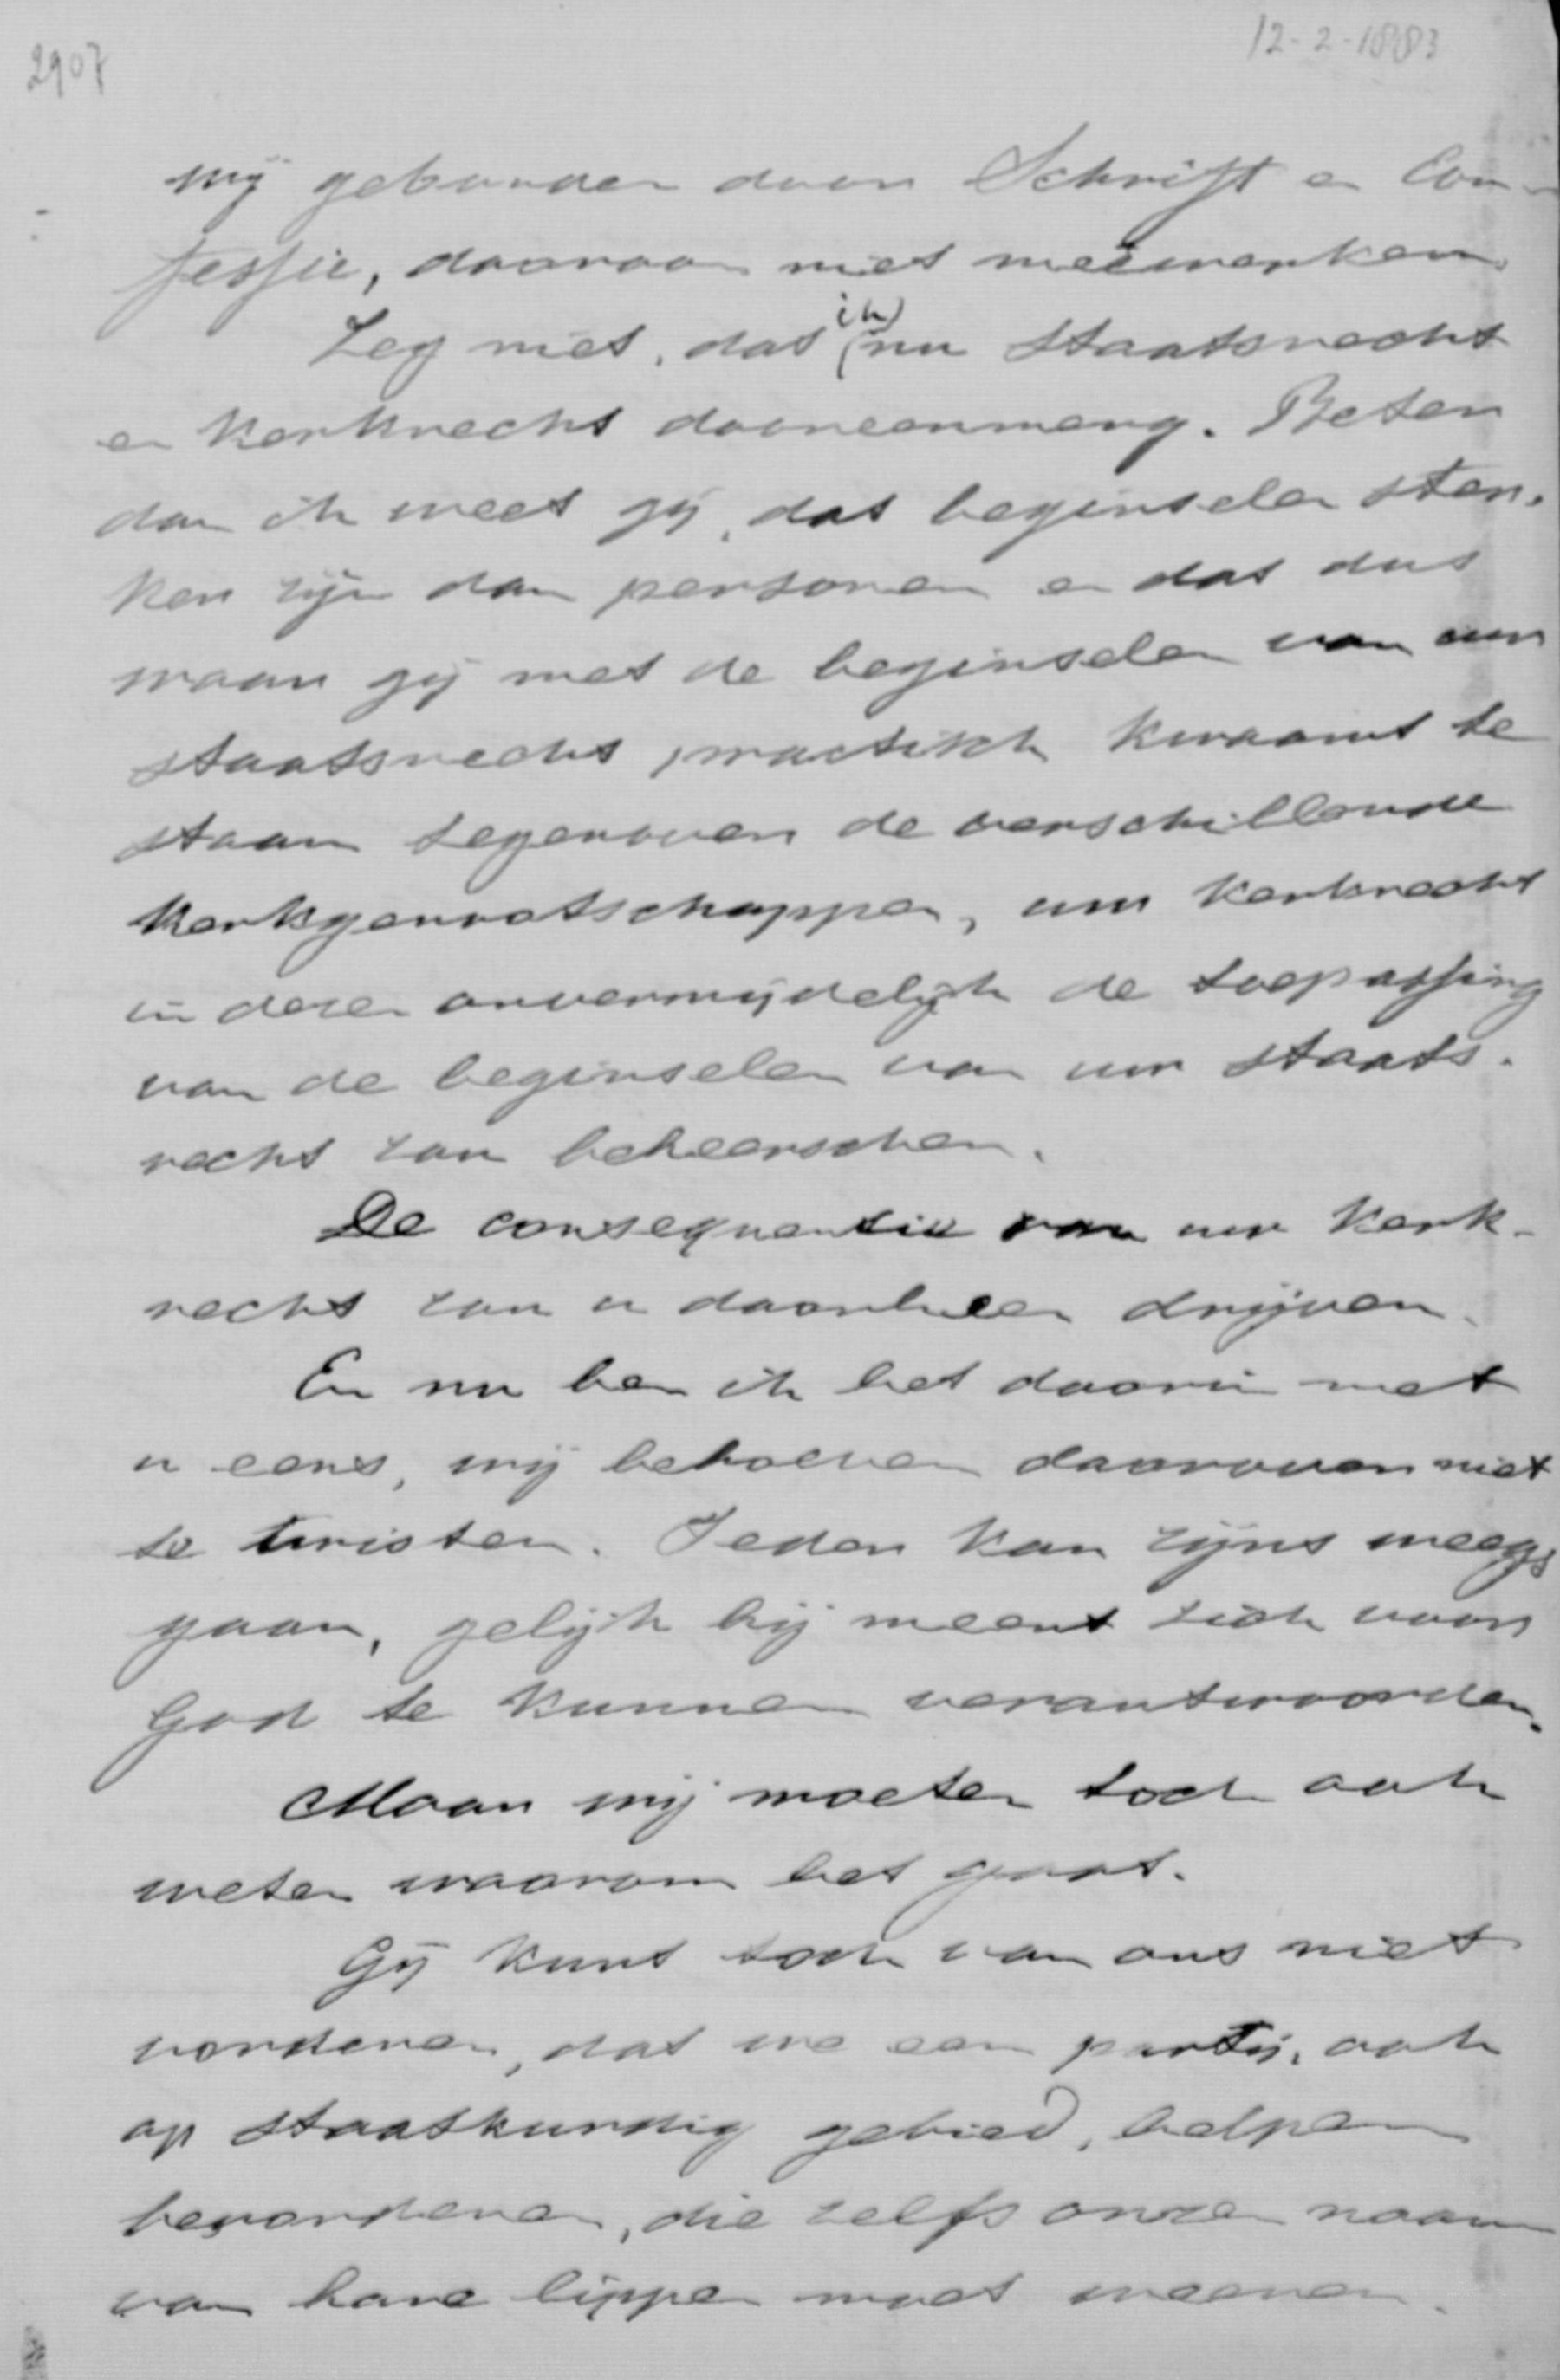 2907
12-2-1883
wij gebonden door Schrift en Con-
fessie, daaraan niet meêwerken.
Zeg niet, dat ik nu staatsrecht
en kerkrecht dooreenmeng. Beter
dan ik weet gij, dat beginselen ster-
ker zijn dan personen en dat dus
waar gij met de beginselen van uw
staatsrecht practisch kwaamt te
staan tegenover de verschillende
kerkgenootschappen, uw kerkrecht
in dezen onvermijdelijk de toepassing
van de beginselen van uw staats-
recht zou beheerschen.
De consequentie van uw kerk-
recht zou u daarheen drijven.
En nu ben ik het daarin met
u eens, wij behoeven daarover niet
te twisten. Ieder kan zijns weegs
gaan, gelijk hij meent zich voor
God te kunnen verantwoorden.
Maar wij moeten toch ook
weten waarom het gaat.
Gij kunt toch van ons niet
vorderen, dat we een partij, ook
op staatkundig gebied, helpen
bevorderen, die zelfs onzen naam
van hare lippen moet weeren.